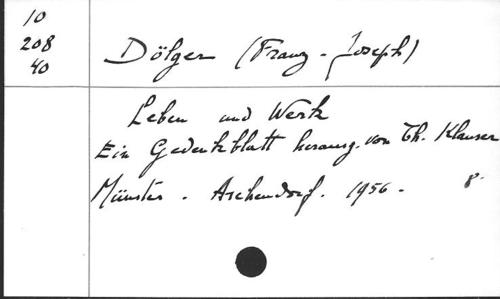 10
208
40
Dölger (Franz-Joseph)
Leben und Werk
Ein Gedenkblatt herausg. von Th. Klauser
Münster. Aschendorf. 1956. 8°